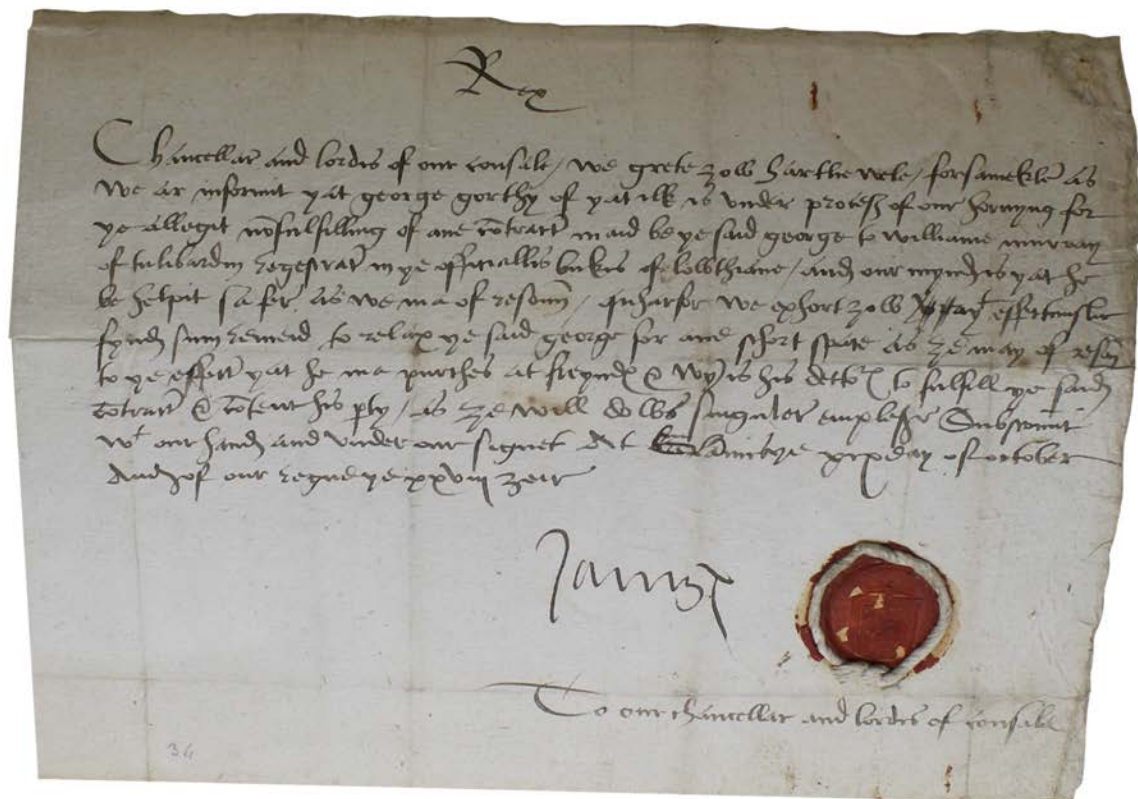 Rex
Chancellar and lordis of our consale / we grete zow hartlie wele / forsamekle as
we ar informit yat george gorthy of yat ilk is under proces of our hornyng for
ye allegit nofulfilling of ane cotract maid be ye said george to williame murray
of tulibardin regestrat in ye officiallis bukis of lowthiane / and our mynd is yat he
be helpit sa fer as we ma of resoun / quharfor we exhort zow effectuuslie
fynd sum remeid to relax ye said george for ane schort space as ze may of reson
to ye effect yat he ma purches at freyndis & his to fulfill ye said
cotract & cotent his pty / as ze will do ws singuler emplesr Subscriuit
wt our hand and under our signet At ye xix day of october
And of our regne ye xxviij zeir
James R
To our chancellar and lordis of consale
34